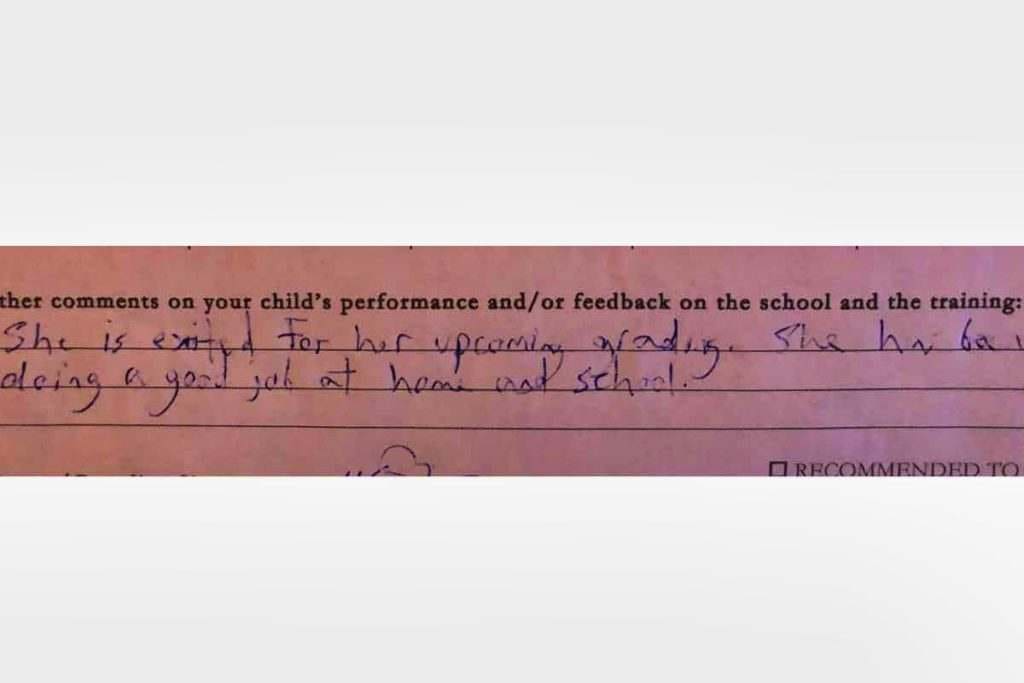 ther comments on your child's performance and/or feedback on the school and the training:
She is exited For her upcoming grading. She has
doing a good job at home and school.
RECOMMENDED TO